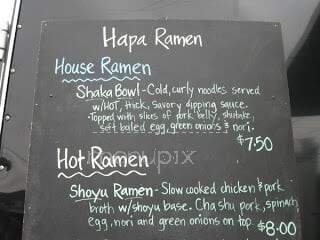 Hapa Ramen
House Ramen
Shaka Bowl - Cold, curly noodles served
w/HOT, thick, savory dipping sauce.
-Topped with slices of pork belly, shiitake,
soft boiled egg, green onions & nori.
$7.50
Hot Ramen
Shoyu Ramen - Slow cooked chicken & pork
broth w/shoyu base. Chashu pork, spinach
egg, nori and green onions on top
$8.00